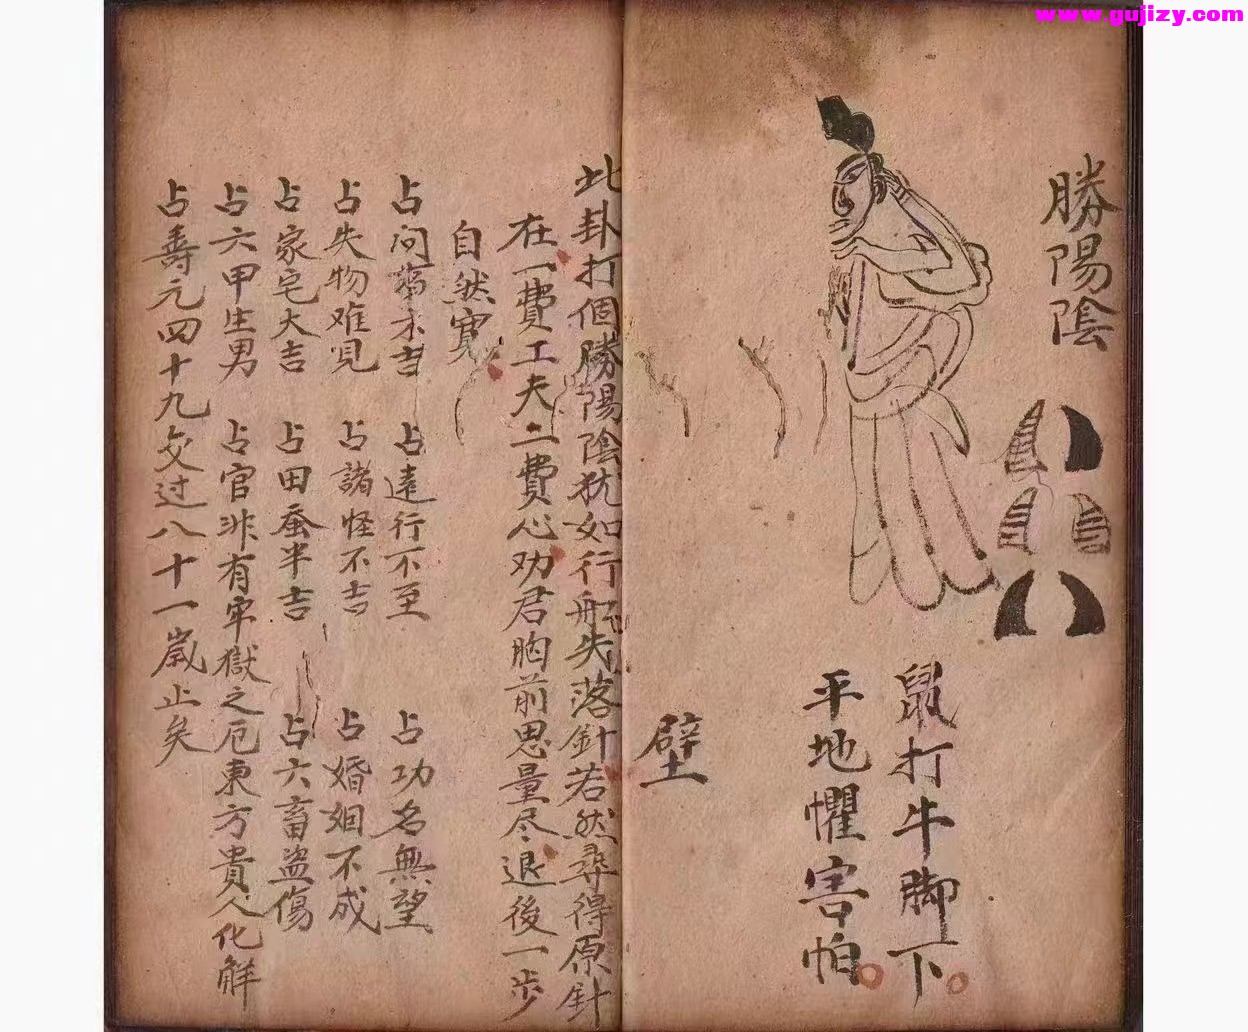 www.gujizy.com
勝陽陰
鼠打牛脚下
平地懼害怕
壁
此卦打個勝陽陰犹如行船失落針若然尋得原針
在一費工夫二費心劝君胸前思量尽退後一步
自然寛
占問病不吉 占遠行不至 占功名無望
占失物难見 占諸怪不吉 占婚姻不成
占家宅大吉 占田蚕半吉 占六畜盗傷
占六甲生男 占官非有牢獄之厄東方貴人化解
占壽元四十九交过八十一嵗止矣